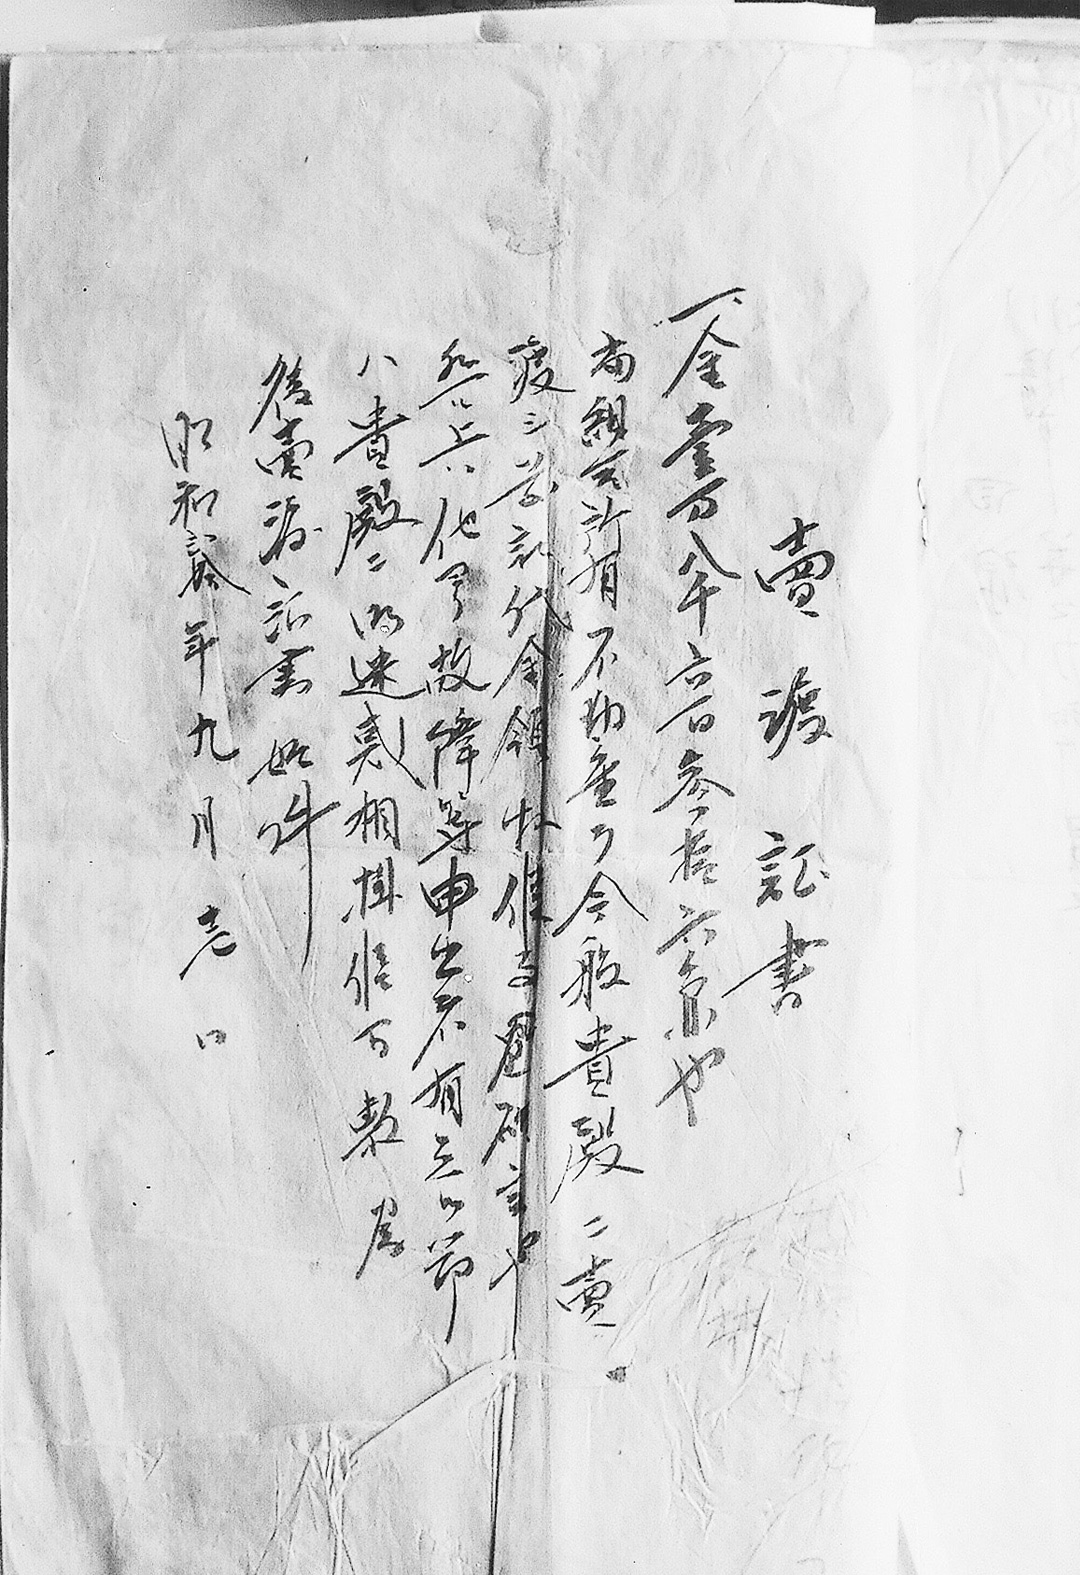 賣渡証書
一、金壹万八千六百参拾六円也
当組合所有不動産ヲ今般貴殿ニ賣
渡シ前記代金領收候事確実也
然ル上ハ他ヨリ故障等申出者有之候節
ハ貴殿ニ御迷惑相掛候間敷為
後日賣渡証書如件
昭和 年九月壱日